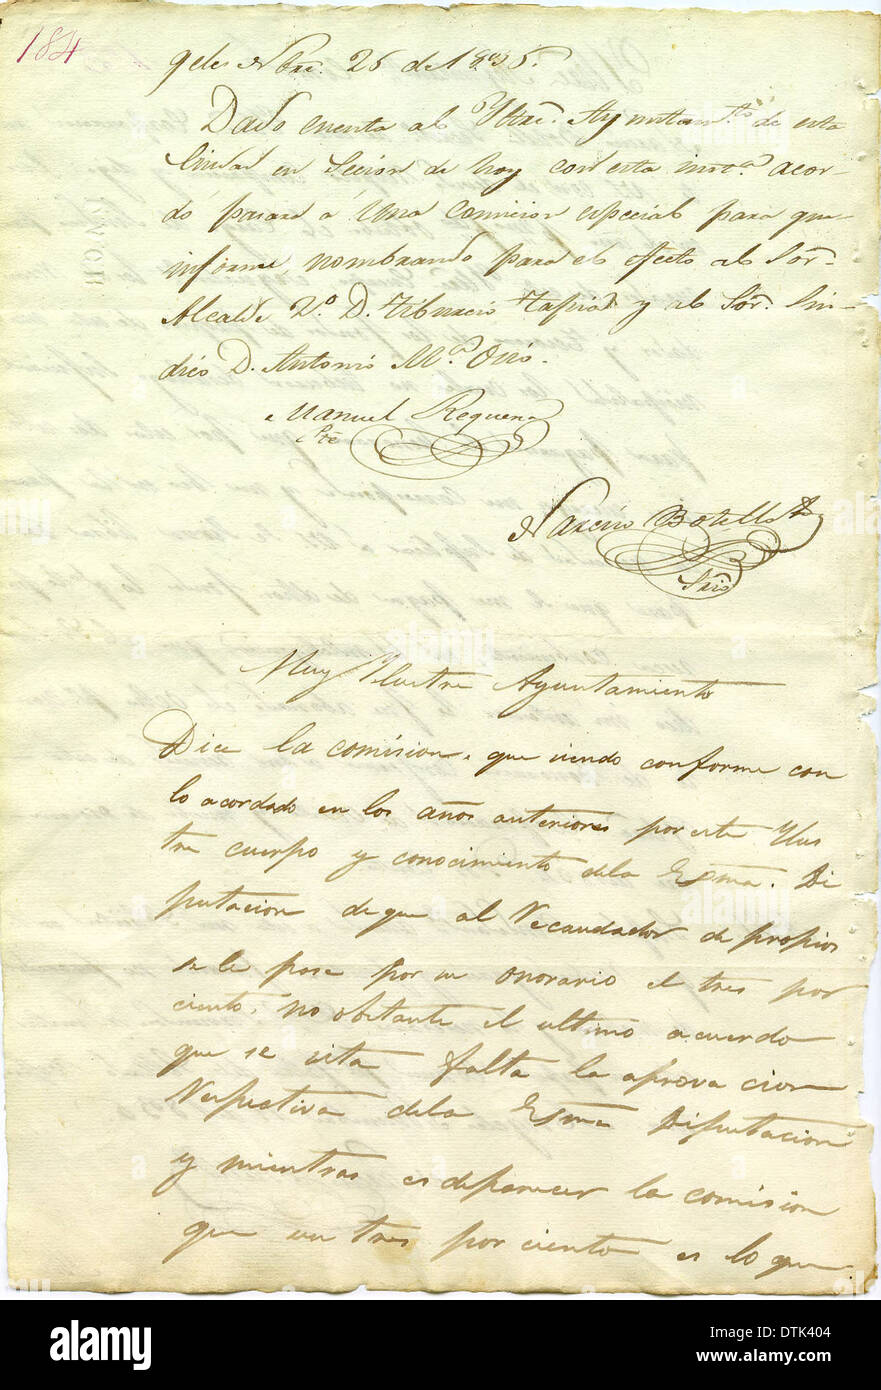 184
geles Nbre. 26 de 1835.
Dada cuenta al Yltre. Ayuntamto. de esta
Ciudad en Secion de hoy con esta insta. acor-
dó pasara á una Comicion especial para que
informe, nombrando para el efecto al Sor.
Alcalde 2o. D. Tiburcio Tapia y al Sor. Sin-
dico D. Antonio Ma. Osio.
Manuel Requena
Pte.
Narciso Botello
Srio
Muy Ylustre Ayuntamiento
Dice la comision, que siendo conforme con
lo acordado en los años anteriores por este Ylus
tre cuerpo y conocimiento dela Esma. Di
putacion de que al Recaudador de propios
se le pase por su onorario el tres por
ciento, no obstante el ultimo acuerdo
que se sita falta la aprovacion
Respectiva dela Esma Diputacion
y mientras es deparecer la comision
que un tres por ciento es lo que
alamy
Image ID: DTK404
www.alamy.com